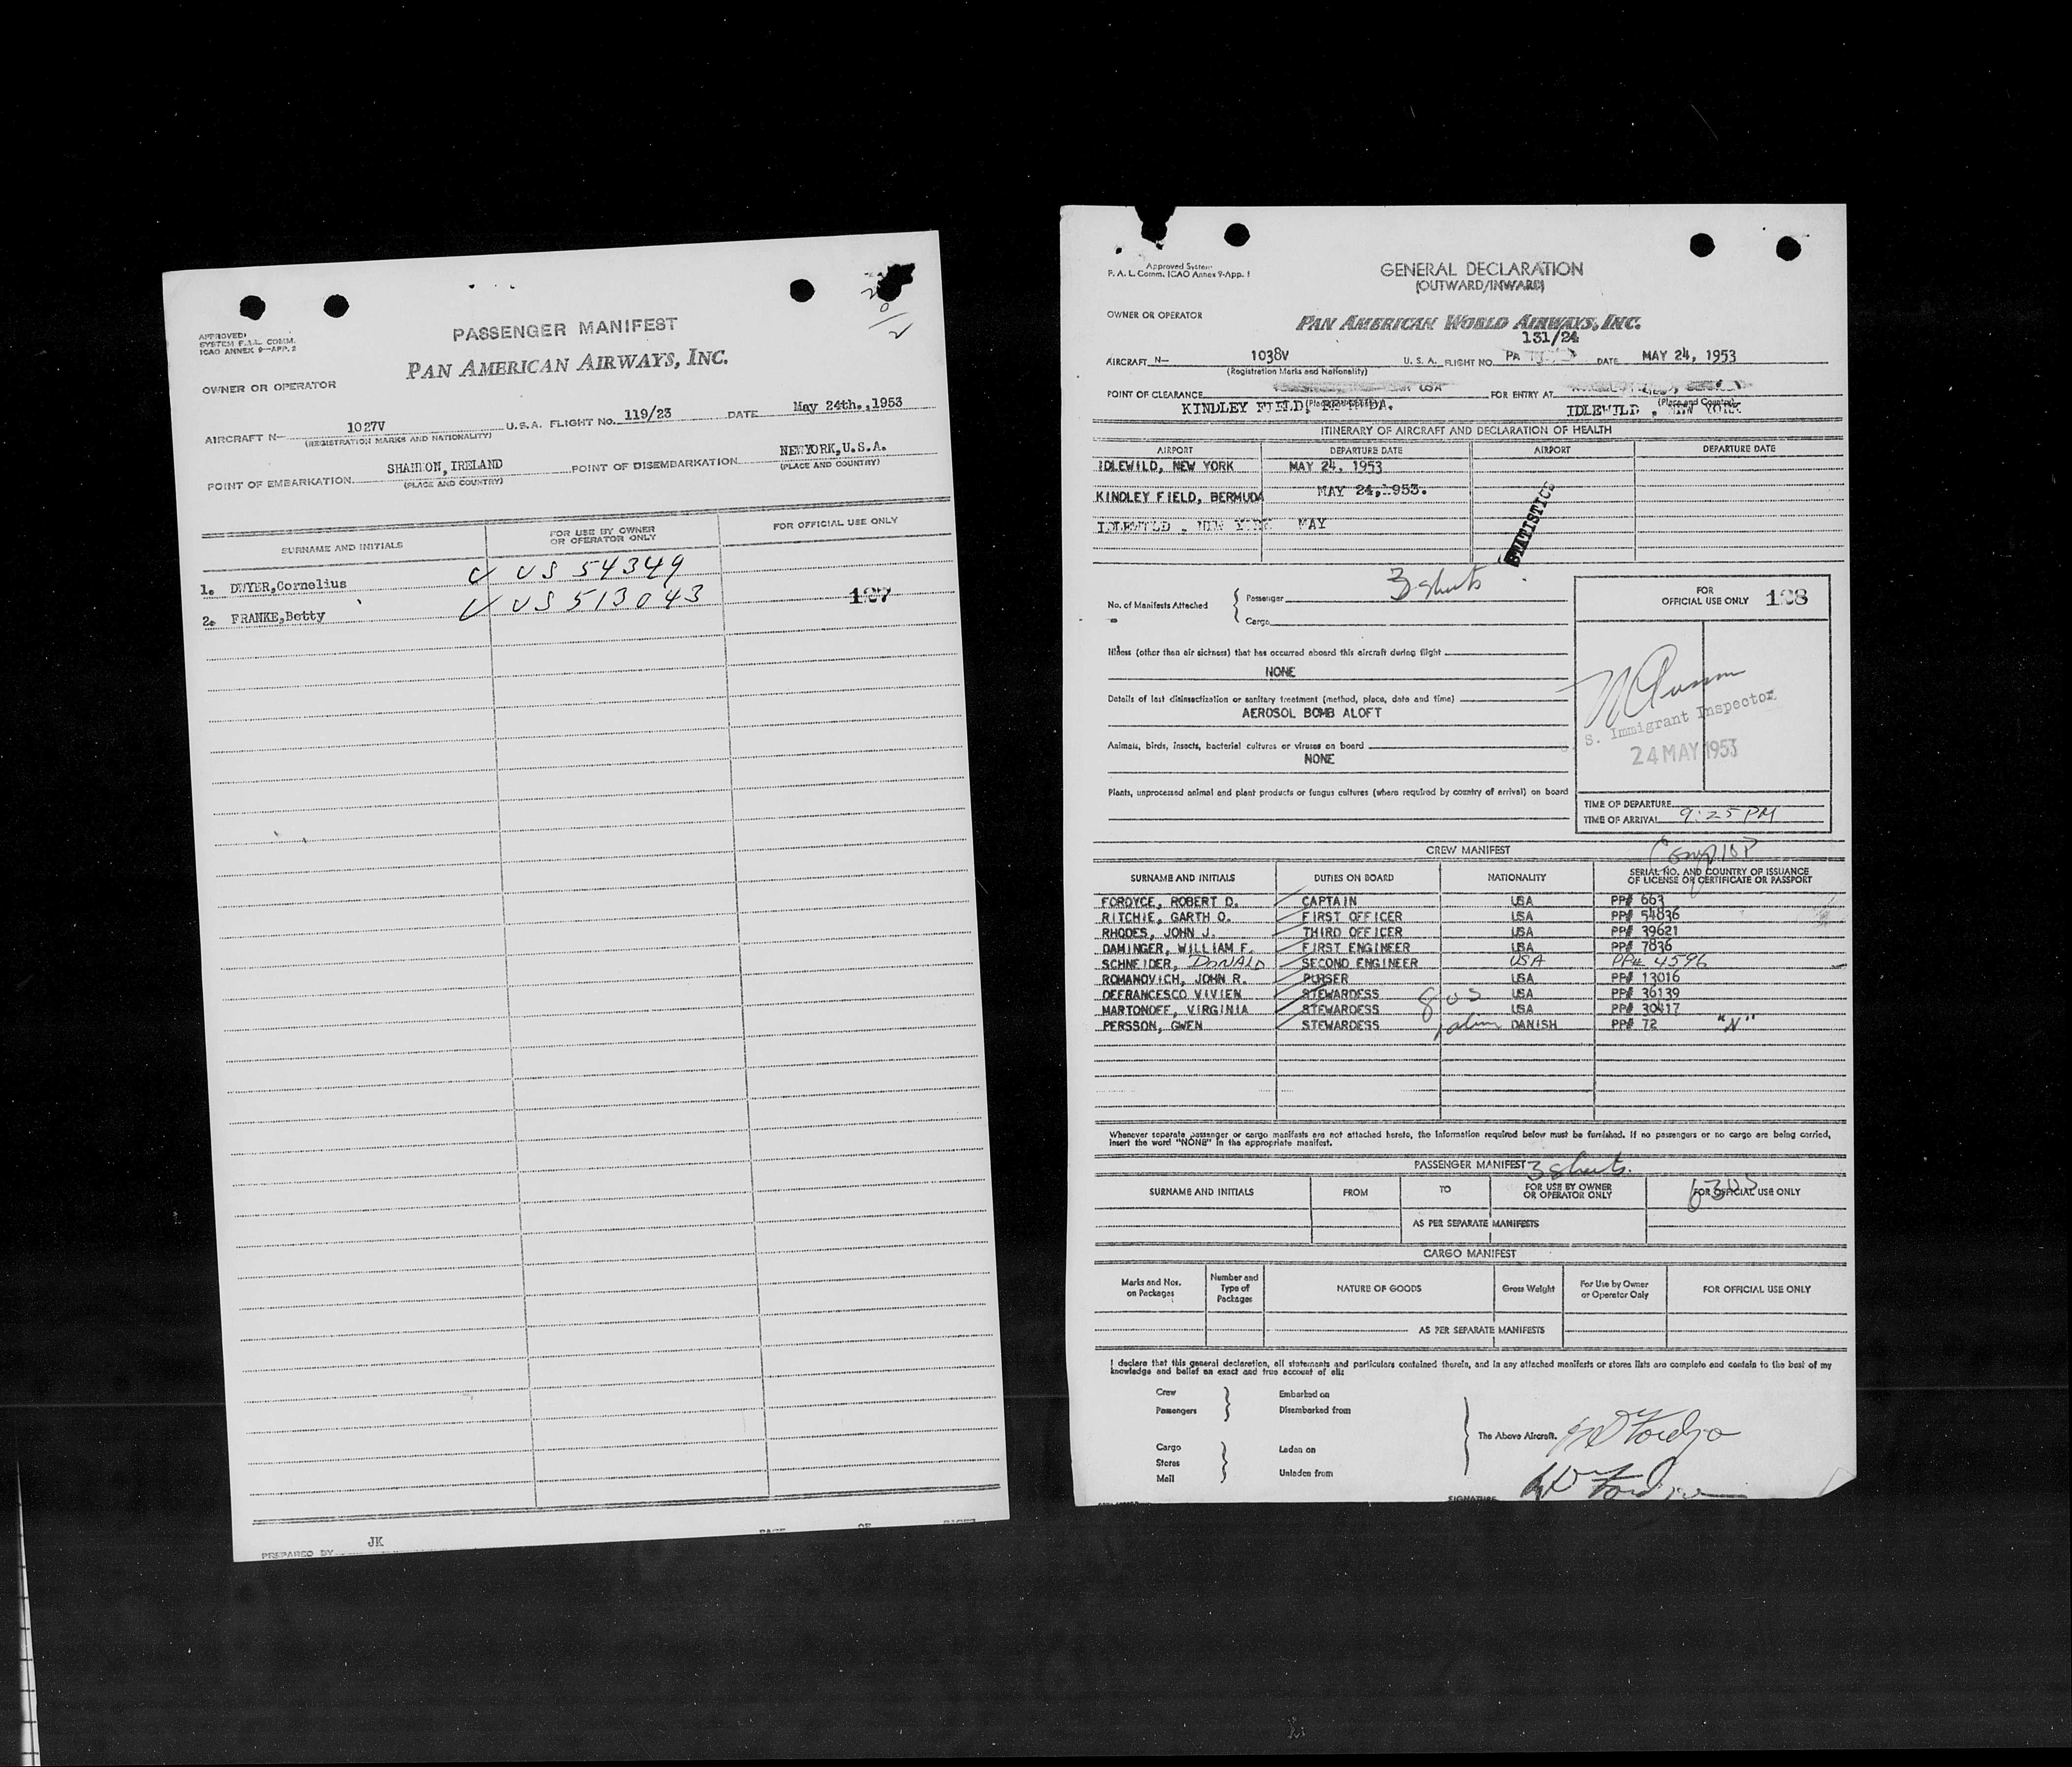 APPROVED:
SYSTEM F.A.L. COMM.
ICAO ANNEX 9—APP. 2
PASSENGER MANIFEST
PAN AMERICAN AIRWAYS, INC.
OWNER OR OPERATOR
AIRCRAFT N— 1027V U.S.A. FLIGHT NO. 119/23 DATE May 24th.,1953
(REGISTRATION MARKS AND NATIONALITY)
POINT OF EMBARKATION SHANNON, IRELAND POINT OF DISEMBARKATION NEWYORK,U.S.A.
(PLACE AND COUNTRY) (PLACE AND COUNTRY)
SURNAME AND INITIALS FOR USE BY OWNER OR OPERATOR ONLY FOR OFFICIAL USE ONLY
1. DWYER,Cornelius ✓ US 54349
2. FRANKE,Betty ✓ US 513043 127
PREPARED BY JK PAGE OF PAGES
Approved System
F. A. L. Comm. ICAO Annex 9-App. 1
GENERAL DECLARATION
(OUTWARD/INWARD)
OWNER OR OPERATOR
PAN AMERICAN WORLD AIRWAYS, INC.
131/24
AIRCRAFT N— 1038V U. S. A. FLIGHT NO. PA DATE MAY 24, 1953
(Registration Marks and Nationality)
POINT OF CLEARANCE USA FOR ENTRY AT
KINDLEY FIELD, BERMUDA. (Place and Country) IDLEWILD , NEW YORK (Place and Country)
ITINERARY OF AIRCRAFT AND DECLARATION OF HEALTH
AIRPORT DEPARTURE DATE AIRPORT DEPARTURE DATE
IDLEWILD, NEW YORK MAY 24, 1953
KINDLEY FIELD, BERMUDA MAY 24,1953.
IDLEWILD , NEW YORK MAY
STATISTICS
No. of Manifests Attached { Passenger 3 sheets
Cargo
FOR
OFFICIAL USE ONLY 128
Illness (other than air sickness) that has occurred aboard this aircraft during flight
NONE
Details of last disinsectization or sanitary treatment (method, place, date and time)
AEROSOL BOMB ALOFT
S. Immigrant Inspector
24 MAY 1953
Animals, birds, insects, bacterial cultures or viruses on board
NONE
Plants, unprocessed animal and plant products or fungus cultures (where required by country of arrival) on board
TIME OF DEPARTURE
TIME OF ARRIVAL 9:25 PM
CREW MANIFEST
SURNAME AND INITIALS DUTIES ON BOARD NATIONALITY SERIAL NO. AND COUNTRY OF ISSUANCE OF LICENSE OR CERTIFICATE OR PASSPORT
FORDYCE, ROBERT D. CAPTAIN USA PP# 663
RITCHIE, GARTH O. FIRST OFFICER USA PP# 54836
RHODES, JOHN J. THIRD OFFICER USA PP# 39621
DAMINGER, WILLIAM F. FIRST ENGINEER USA PP# 7836
SCHNEIDER, DONALD SECOND ENGINEER USA PP# 4596
ROMANOVICH, JOHN R. PURSER USA PP# 13016
DEFRANCESCO VIVIEN STEWARDESS 8 US USA PP# 36139
MARTONDEE, VIRGINIA STEWARDESS USA PP# 30417
PERSSON, GWEN STEWARDESS 1 alien DANISH PP# 72 "N"
Whenever separate passenger or cargo manifests are not attached hereto, the information required below must be furnished. If no passengers or no cargo are being carried,
insert the word "NONE" in the appropriate manifest.
PASSENGER MANIFEST 3 sheets.
SURNAME AND INITIALS FROM TO FOR USE BY OWNER OR OPERATOR ONLY FOR OFFICIAL USE ONLY
AS PER SEPARATE MANIFESTS
CARGO MANIFEST
Marks and Nos. on Packages Number and Type of Packages NATURE OF GOODS Gross Weight For Use by Owner or Operator Only FOR OFFICIAL USE ONLY
AS PER SEPARATE MANIFESTS
I declare that this general declaration, all statements and particulars contained therein, and in any attached manifests or stores lists are complete and contain to the best of my
knowledge and belief an exact and true account of all:
Crew } Embarked on
Passengers Disembarked from
The Above Aircraft. RD Fordyce
Cargo } Laden on
Stores
Mail Unladen from
SIGNATURE RD Fordyce